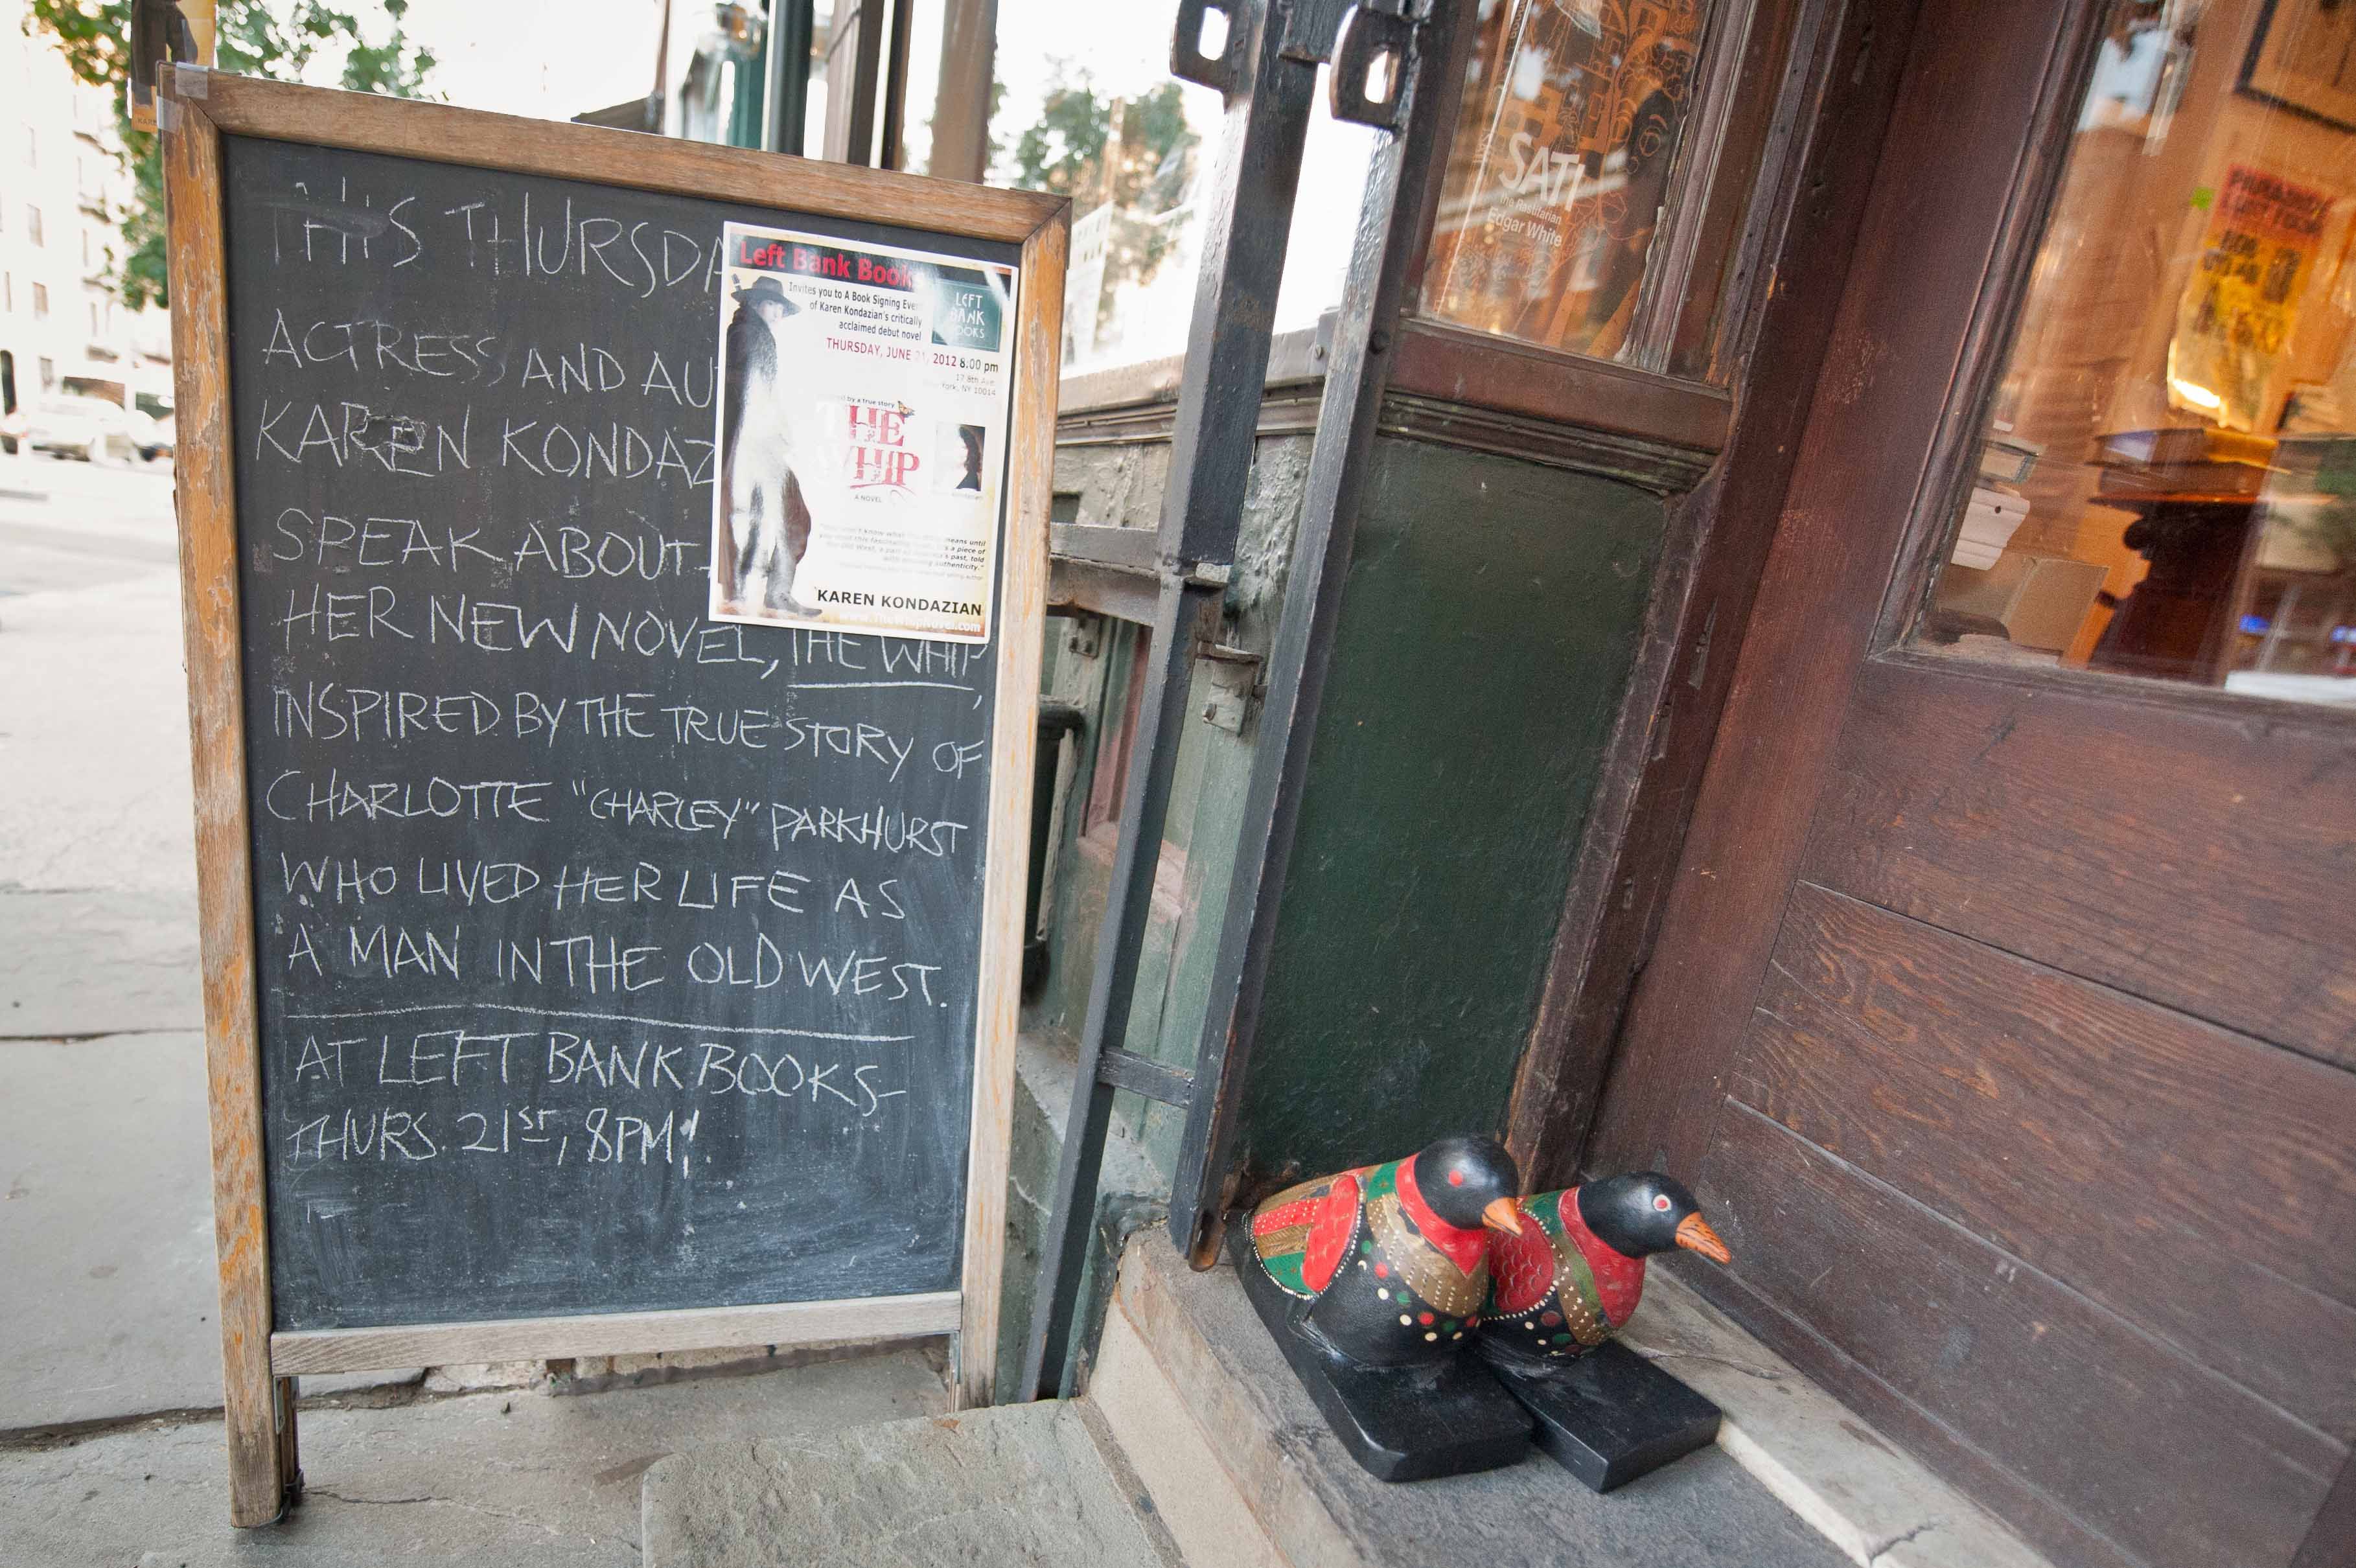 THIS THURSDA
ACTRESS AND AU
KAREN KONDAZ
SPEAK ABOUT
HER NEW NOVEL, THE WHIP,
INSPIRED BY THE TRUE STORY OF
CHARLOTTE "CHARLEY" PARKHURST
WHO LIVED HER LIFE AS
A MAN IN THE OLD WEST.
AT LEFT BANK BOOKS-
THURS. 21ST, 8PM!
Left Bank Book
Invites you to A Book Signing Eve
of Karen Kondazian's critically
acclaimed debut novel
LEFT
BANK
BOOKS
THURSDAY, JUNE 21, 2012 8.00 pm
17 8th Ave.
York, NY 10014
by a true story
THE
WHIP
A NOVEL
means until
a piece of
past, told
authenticity."
KAREN KONDAZIAN
www.TheWhipNovel.com
SATI
the Rastifarian
Edgar White